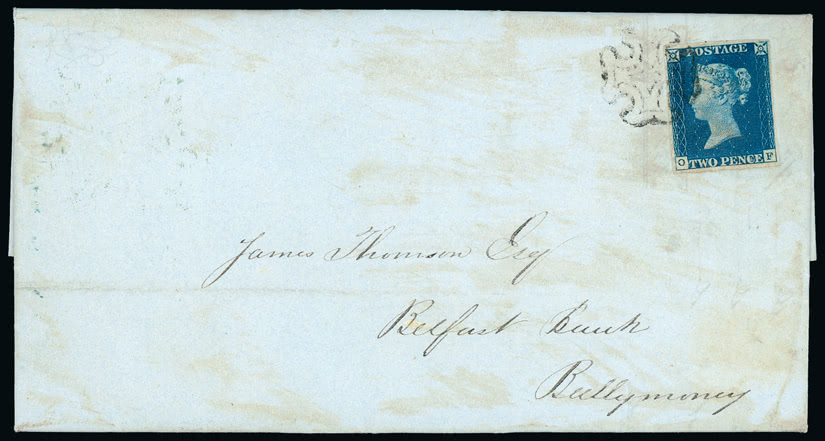 POSTAGE
TWO PENCE
O F
James Thomson Esq
Belfast Bank
Ballymoney